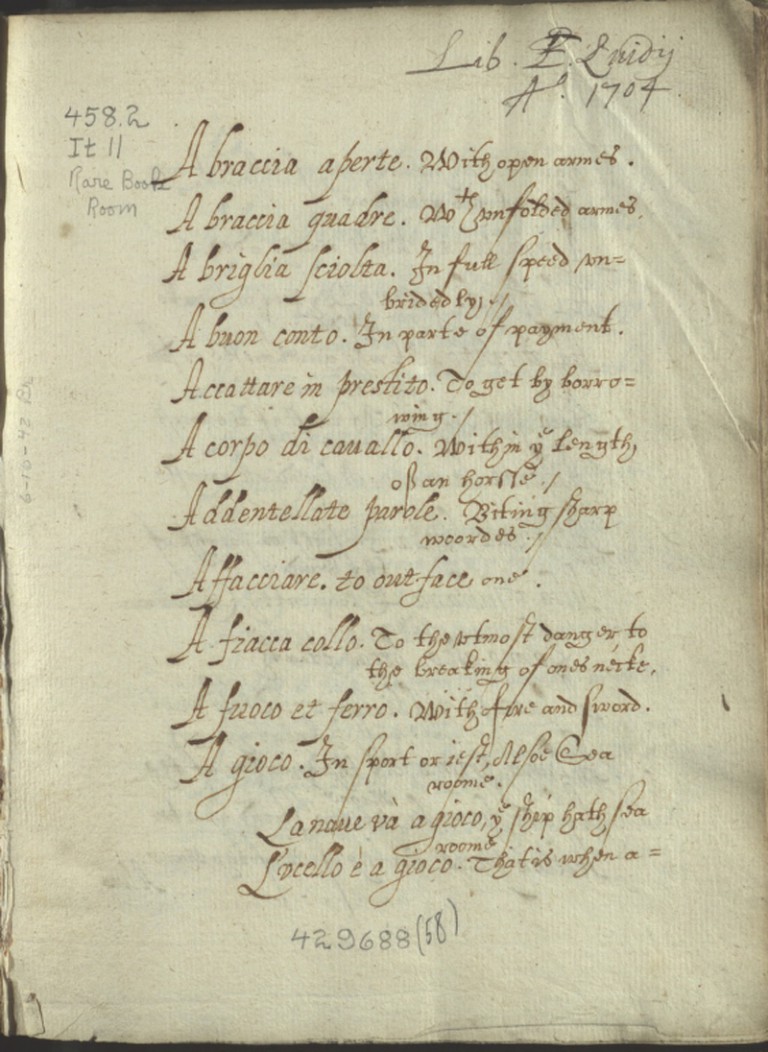 Lib. E. Lhidij
A°. 1704
458.2
It 11
Rare Book
Room
A braccia aperte. With open armes.
A braccia quadre. Wth vnfolded armes.
A briglia sciolta. In full speed vn=
bridedly./
A buon conto. In parte of payment.
Accattare in prestito. To get by borro=
wing./
A corpo di cauallo. Within ye length,
of an horsse./
Addentellate parole. Biting sharp
woordes./
Affacciare. to outface one.
A fiacca collo. To the vtmost danger to
the breaking of ones necke.
A fuoco et ferro. With fire and sword.
A gioco. In sport or iest, Alsoe Sea
roome.
La naue và a gioco, ye ship hath sea
roome
L'vcello è a gioco. That is when a=
429688(58)
6-10-42 Br